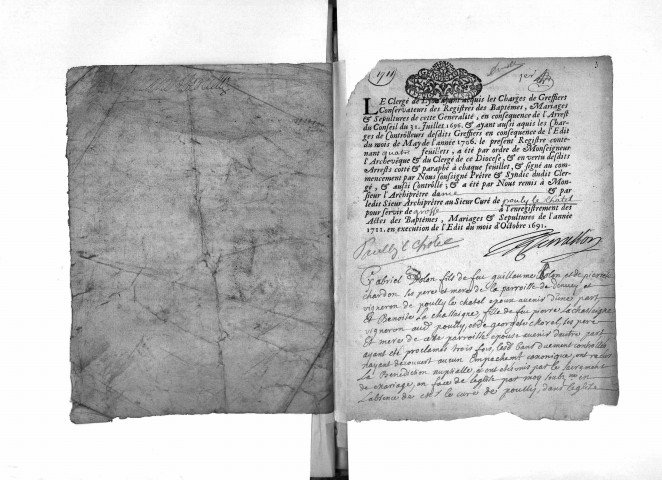 1711
LE Clergé de Lyon ayant acquis les Charges de Greffiers
Conservateurs des Registres des Baptêmes, Mariages
& Sepultures de cette Generalité, en consequence de l'Arrest
du Conseil du 31. Juillet 1696. & ayant aussi aquis les Char-
ges de Controlleurs desdits Greffiers en consequence de l'Edit
du mois de May de l'année 1706. le present Registre conte-
nant quatre feuillets, a été par ordre de Monseigneur
l'Archevêque & du Clergé de ce Diocese, & en vertu desdits
Arrests cotté & paraphé à chaque feuillet, & signé au com-
mencement par Nous soussigné Prêtre & Syndic dudit Cler-
gé, & aussi Controllé; & a été par Nous remis à Mon-
sieur l'Archiprêtre & par
ledit Sieur Archiprêtre au Sieur Curé de pouilly le chatel
pour servir de grosse à l'enregistrement des
Actes des Baptêmes, Mariages & Sepultures de l'année
1711. en execution de l'Edit du mois d'Octobre 1691.
Pouilly le
Gabriel fils de feu guillaume et de pierre
chardon ses pere et mere de la parroisse de et
vigneron de pouilly le chatel epoux avenir d'une part
Et Benoiste La chassaigne fille de feu pierre La chassaigne
vigneron aud pouilly et de georgette chorel ses pere
Et mere de cette parroisse epouse avenir d'autre part
ayant été proclamés trois fois, lesd bans duement controllés
n'ayant decouvert aucun Empechement canonique, ont receu
La Benediction nuptialle, & ont etés unis par le sacrement
de mariage, en face de leglise par moy
l'absence de le curé de pouilly, dans leglise